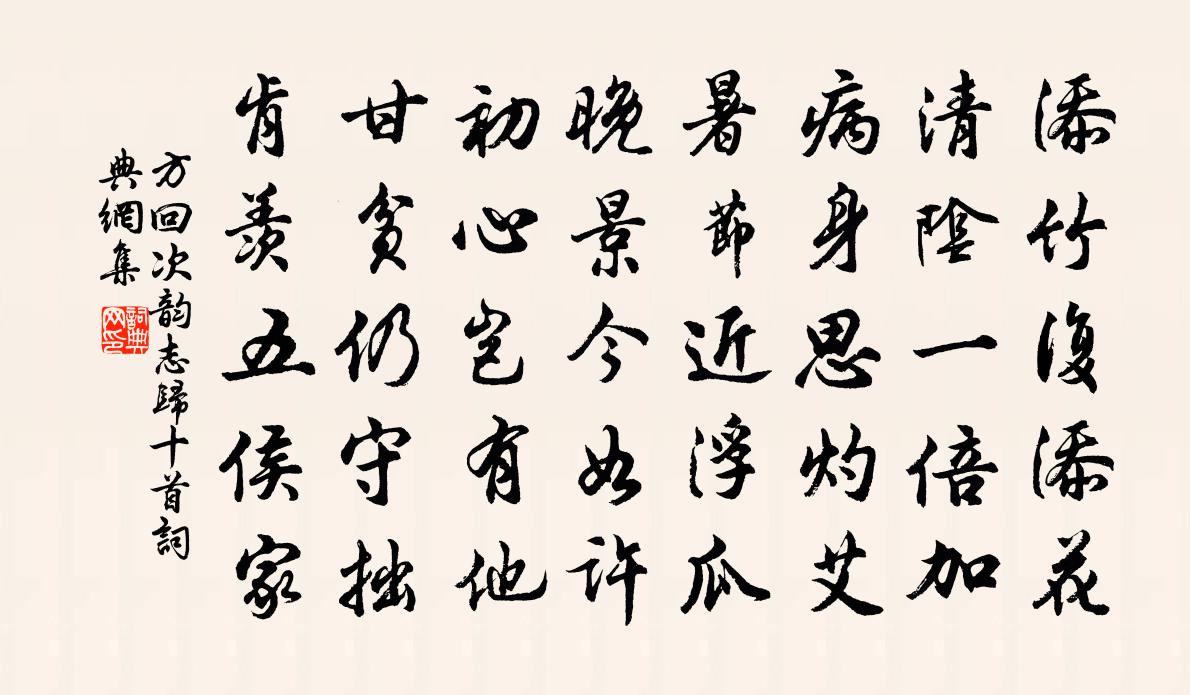 添竹復添花
清陰一倍加
病身思灼艾
暑節近浮瓜
晚景今如許
初心豈有他
甘貧仍守拙
肯羨五侯家
方回次韵志歸十首詞
典網集
詞典网印